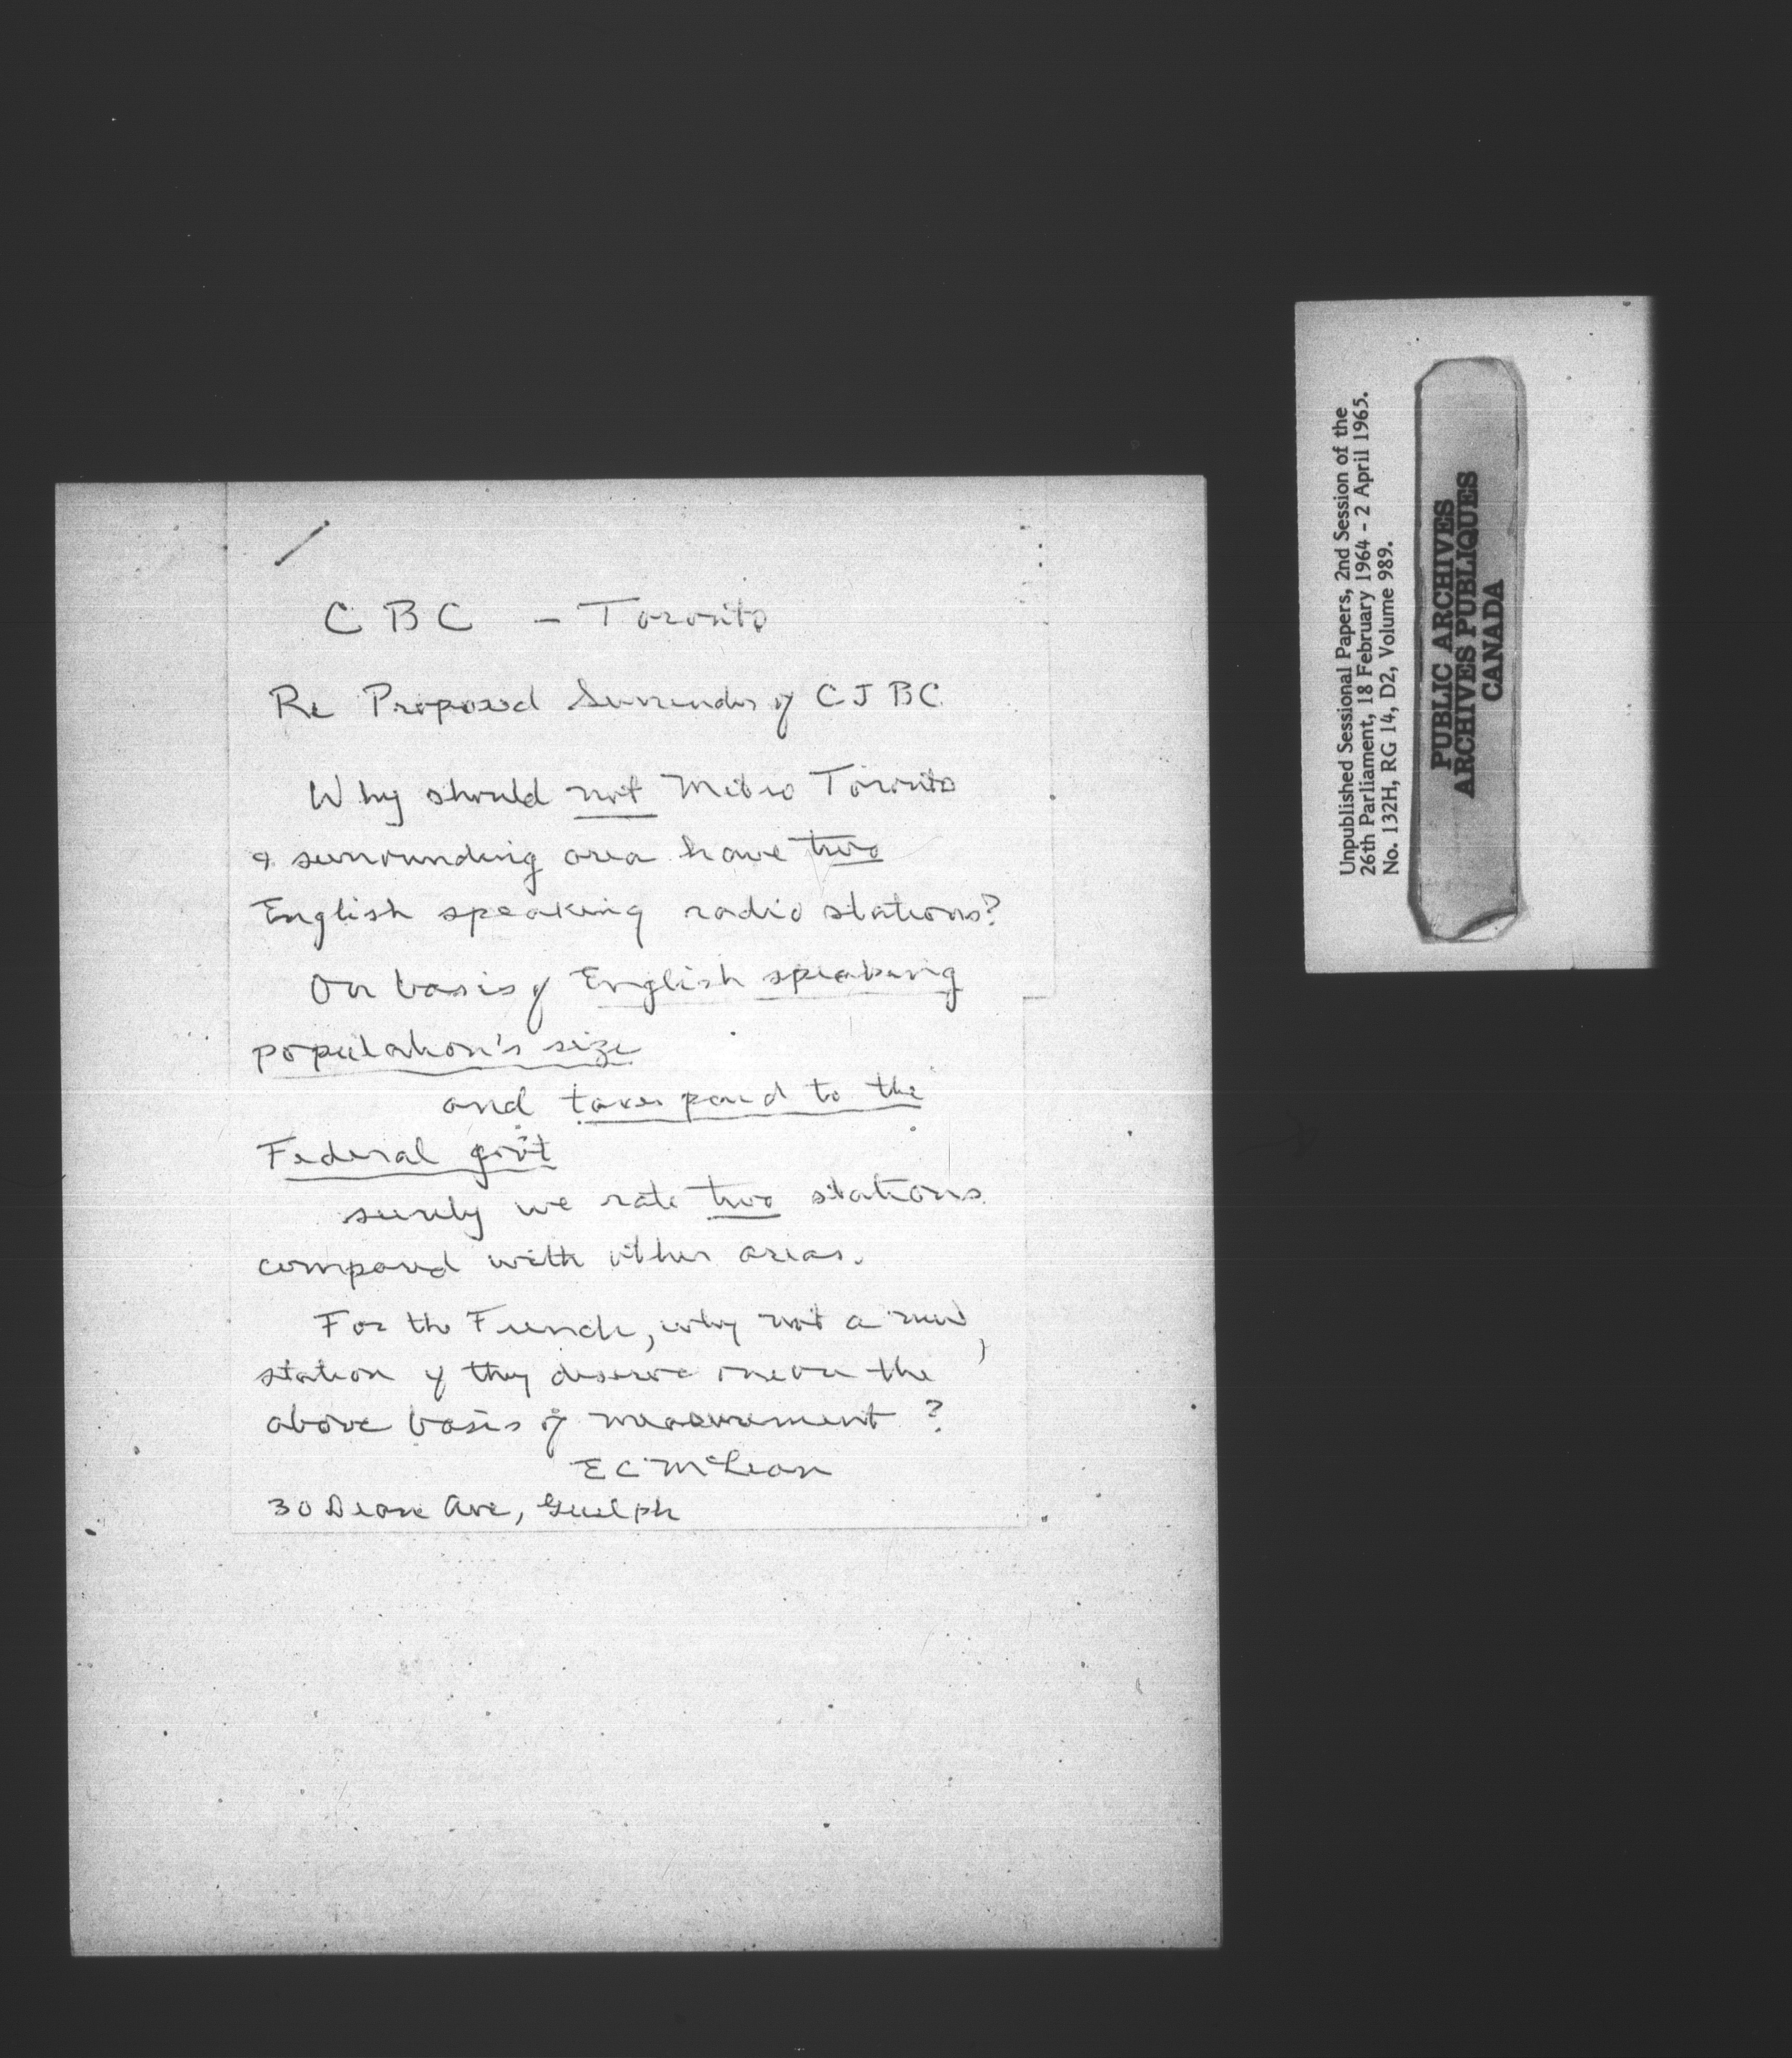 CBC - Toronto
Re Proposed Surrender of CJBC
Why should not Metro Toronto
& surrounding area have two
English speaking radio stations?
On basis of English speaking
population's size
and taxes paid to the
Federal gov't
surely we rate two stations
compared with other areas.
For the French, why not a new
station if they deserve one on the
above basis of measurement?
E C McLean
30 Deane Ave, Guelph
Unpublished Sessional Papers, 2nd Session of the
26th Parliament, 18 February 1964 - 2 April 1965.
No. 132H, RG 14, D2, Volume 989.
PUBLIC ARCHIVES
ARCHIVES PUBLIQUES
CANADA